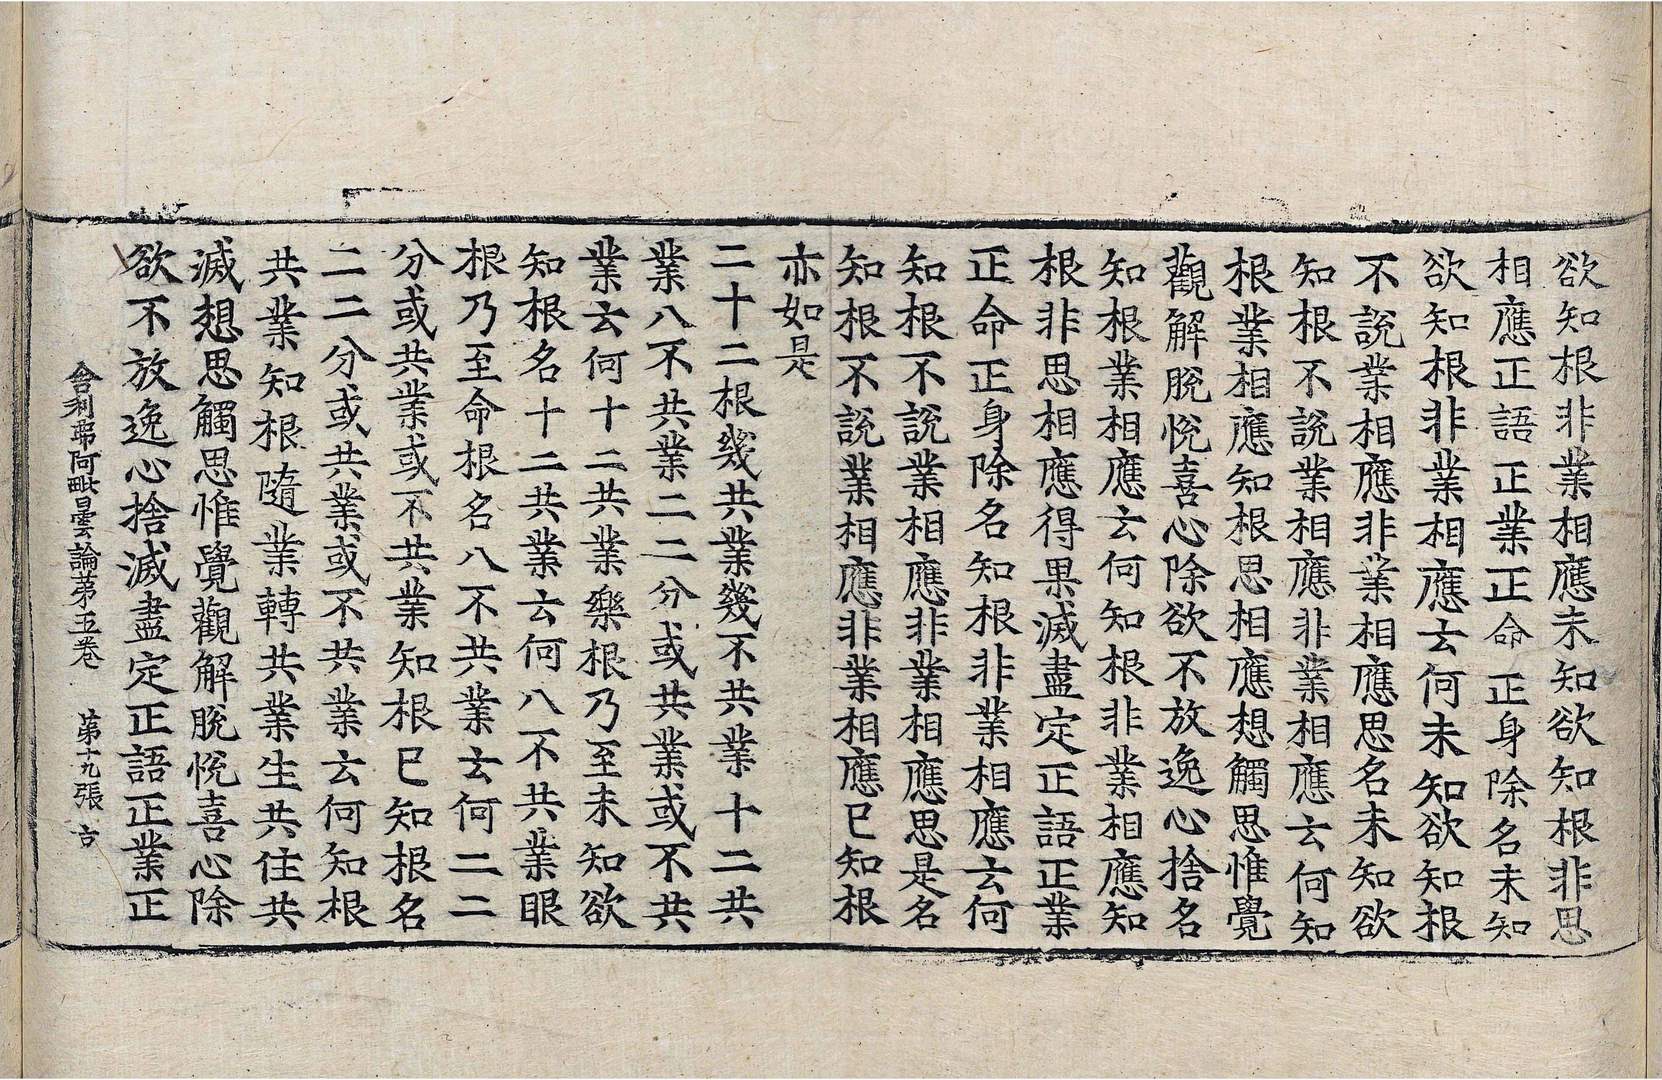 欲知根非業相應未知欲知根非思
相應正語正業正命正身除名未知
欲知根非業相應云何未知欲知根
不說業相應非業相應思名未知欲
知根不說業相應非業相應云何知
根業相應知根思相應想觸思惟覺
觀解脫悅喜心除欲不放逸心捨名
知根業相應云何知根非業相應知
根非思相應得果滅盡定正語正業
正命正身除名知根非業相應云何
知根不說業相應非業相應思是名
知根不說業相應非業相應已知根
亦如是
二十二根幾共業幾不共業十二共
業八不共業二二分或共業或不共
業云何十二共業樂根乃至未知欲
知根名十二共業云何八不共業眼
根乃至命根名八不共業云何二二
分或共業或不共業知根已知根名
二二分或共業或不共業云何知根
共業知根隨業轉共業生共住共
滅想思觸思惟覺觀解脫悅喜心除
欲不放逸心捨滅盡定正語正業正
舍利弗阿毗曇論第五卷 第十九張 言